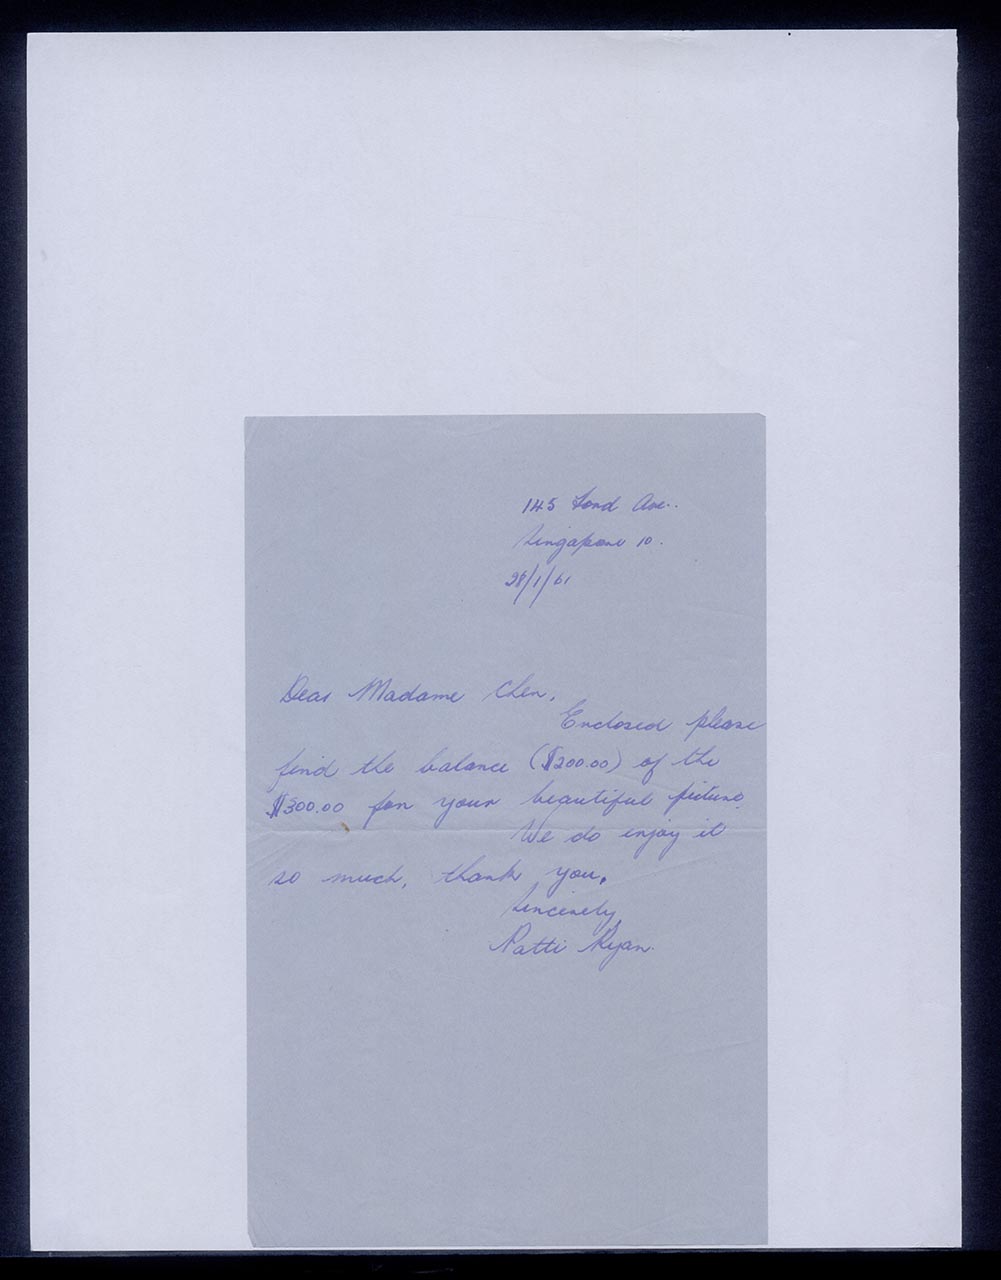 145 Ford Ave..
Singapore 10.
28/1/61
Dear Madame Chen,
Enclosed please
find the balance ($200.00) of the
$300.00 for your beautiful picture.
We do enjoy it
so much, thank you.
Sincerely,
Patti Ryan.